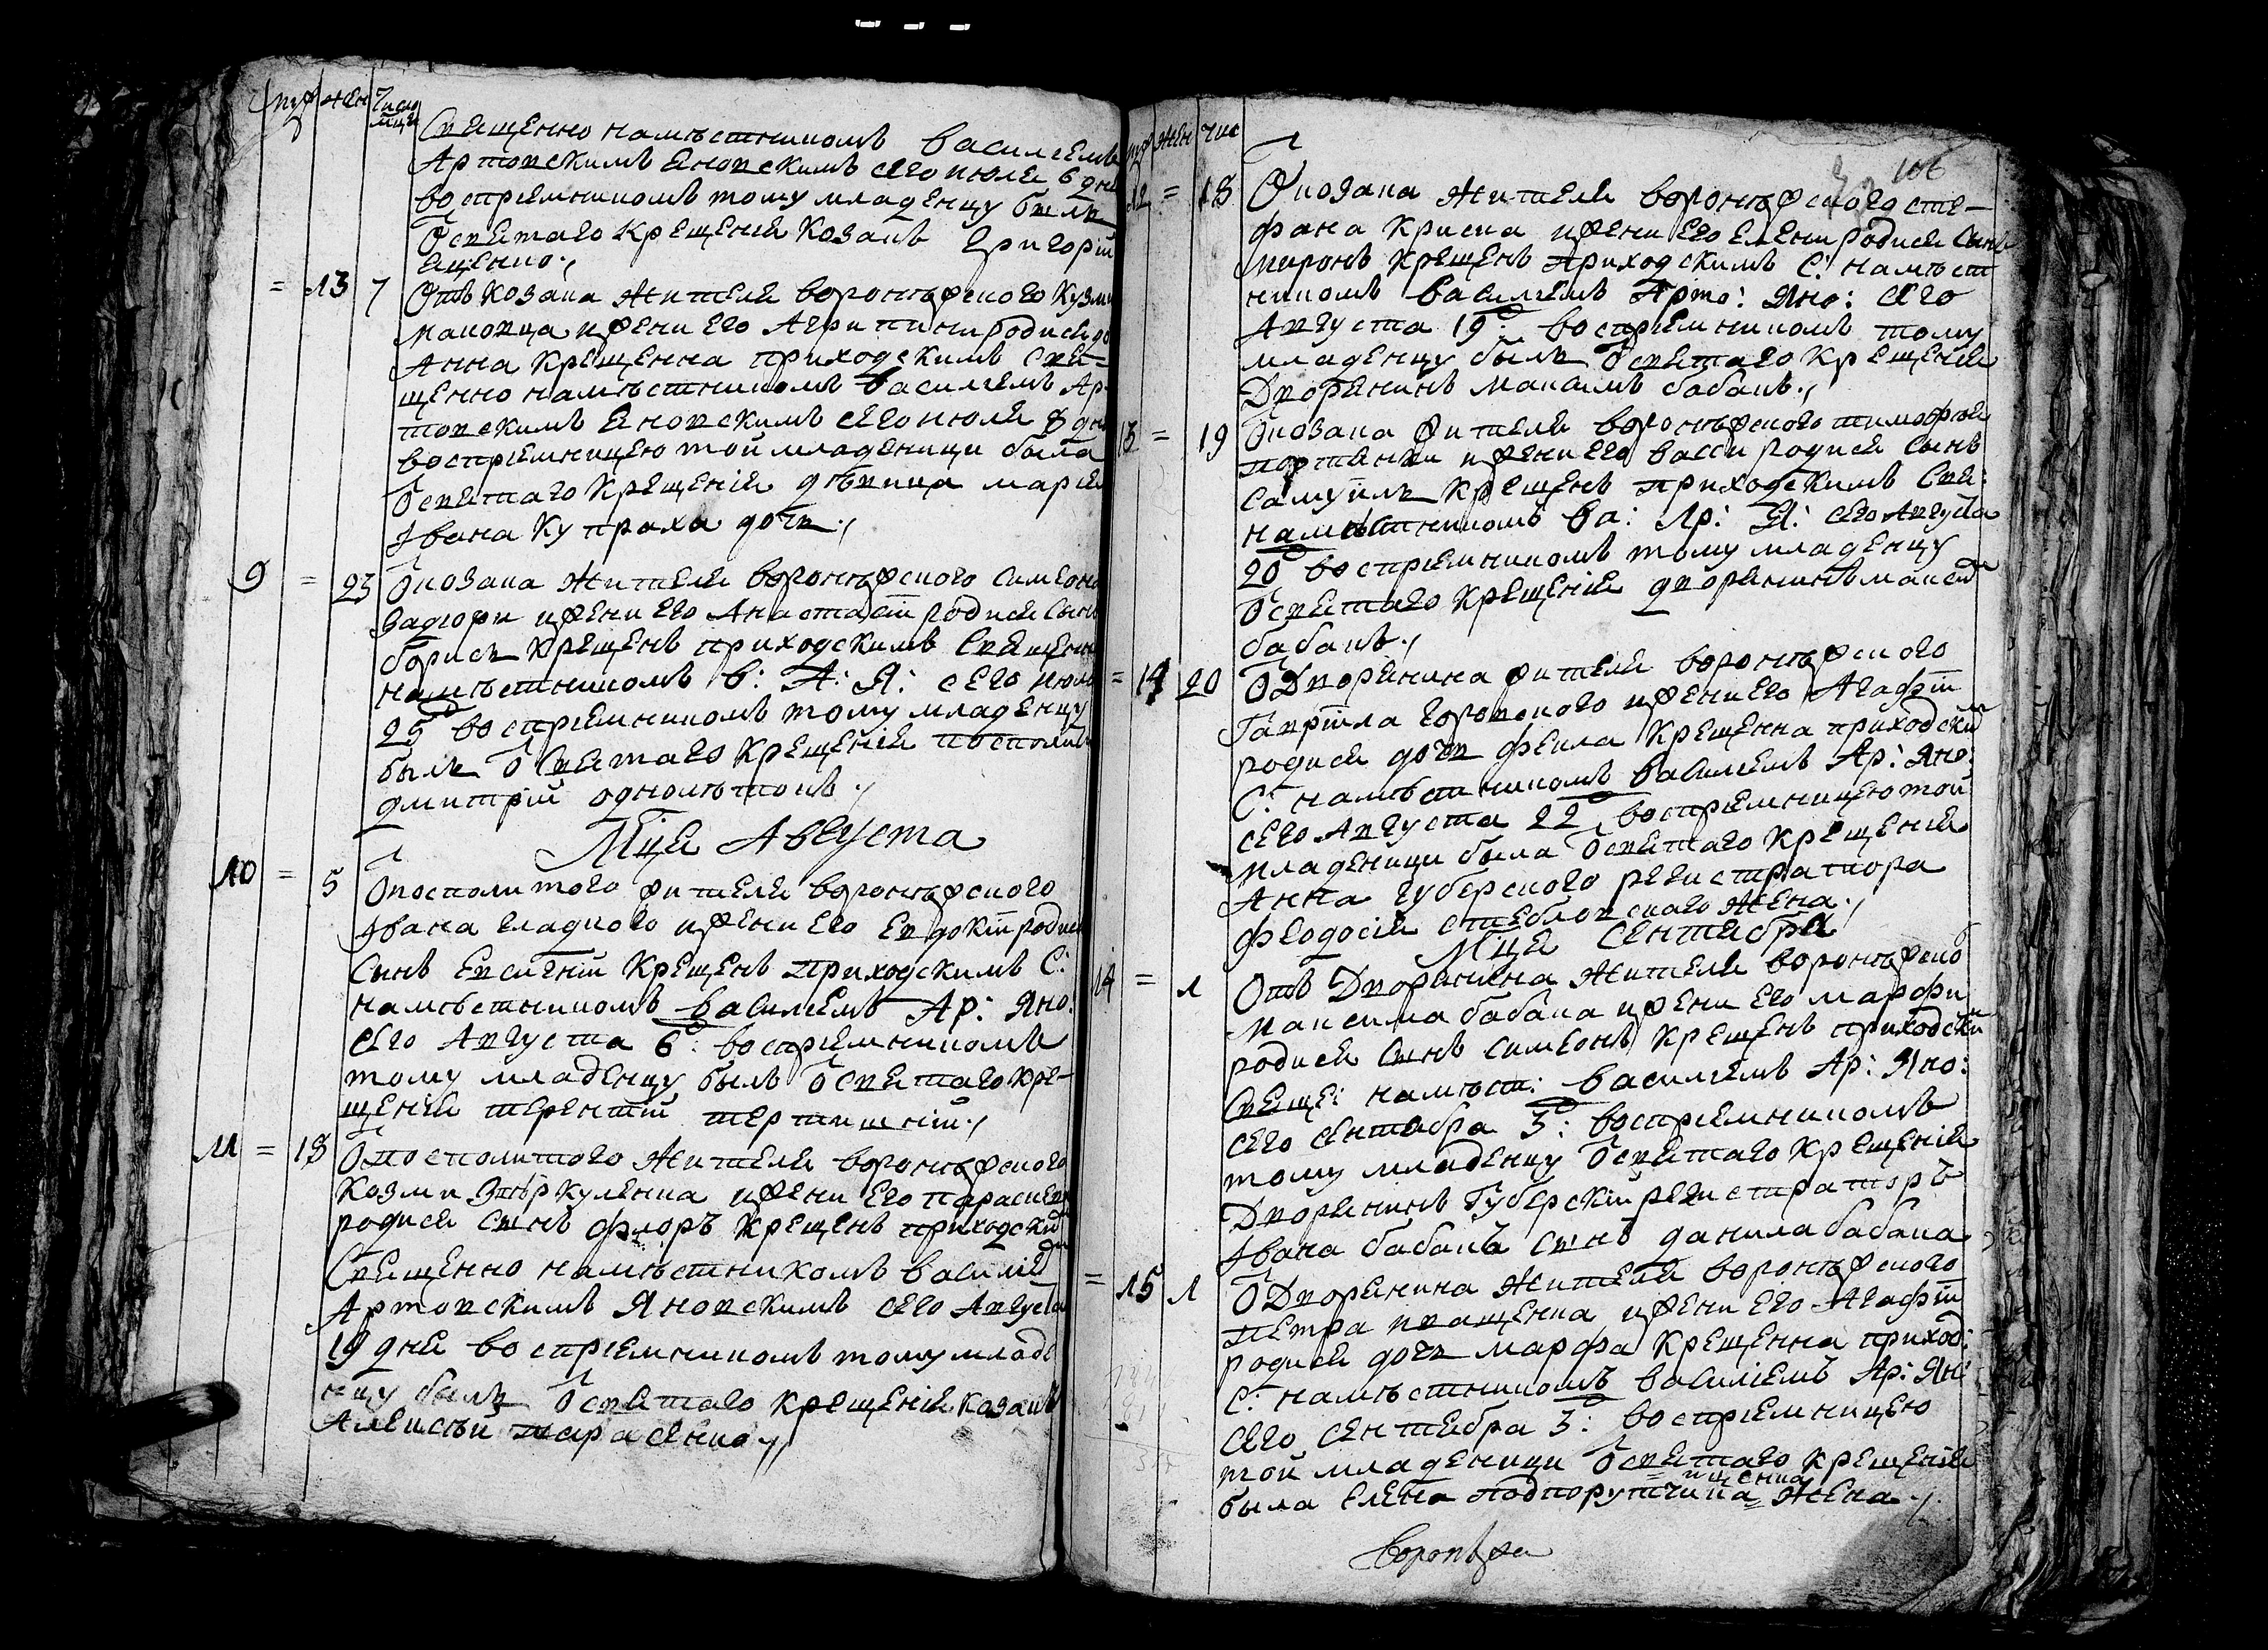 муж жен Число мца
Священно намѣстникомъ Василіемъ
Артовскимъ Яновскимъ сего июля 6 дня
воспріемникомъ тому младенцу былъ
ѿ святаго крещенія козакъ Григорій
Ященко
= 13 7 Отъ козака жителя воронѣжского Кузми
Маковца и жени его Агрипини родися до
Анна крещенна приходскимъ Свя-
щенно намѣстникомъ Василіемъ Ар-
товскимъ Яновскимъ сего июля 8 дня
воспріемницею той младеници была
ѿ святаго крещенія дѣвица Марія
Ивана Купраха дочъ
9 = 23 Ѿ козака жителя воронѣжского Симеона
Задиори и жени его Анастасіи родися сынъ
Борисъ крещенъ приходскимъ Священно
намѣстникомъ В: А: Я: сего июля
25 воспріемникомъ тому младенцу
былъ ѿ святаго крещенія посполит
Дмитрій Однолѣтокъ
Мца Августа
10 = 5 Ѿ посполитого жителя воронѣжского
Ивана Гладкого и жени его Евдокіи родися
сынъ Евсигній крещенъ приходскимъ С:
намѣстникомъ Василіемъ Ар: Яно:
сего Августа 6: воспріемникомъ
тому младенцу былъ ѿ святаго кре-
щенія Терентій
11 = 18 Ѿ посполитого жителя воронѣжского
Козми и жени его Параскеви
родися сынъ Флоръ крещенъ приходским
Священно намѣстникомъ Василіем
Артовскимъ Яновскимъ сего Августа
19 дня воспріемникомъ тому младе
нцу былъ ѿ святаго крещенія козакъ
Алексѣй Тарасенко
муж жен чис
106
12 = 18 Ѿ козака жителя воронѣжского Сте-
фана Криска и жени его Елени родися сынъ
Миронъ крещенъ приходскимъ С: намѣст
никомъ Василіемъ Арто: Яно: сего
Августа 19: воспріемникомъ тому
младенцу былъ ѿ святаго крещенія
Дворянинъ Максимъ Бабакъ
13 = 19 Ѿ козака жителя воронѣжского Тимофея
и жени его Васси родися сынъ
Самуилъ крещенъ приходскимъ Свя:
намѣстникомъ Ва: Ар: Я: сего Августа
20 воспріемникомъ тому младенцу
ѿ святаго крещенія дворянинъ Максим
Бабакъ
= 14 20 Ѿ Дворянина жителя воронѣжского
Гавріила Горовского и жени его Агафіи
родися дочъ Фекла крещенна приходским
С: намѣстникомъ Василіемъ Ар: Яно:
сего Августа 22 воспріемницею той
младеници была ѿ святаго крещения
Анна губерского регистратора
Феодосія Стебловского жена
Мца Сентября
14 = 1 Отъ Дворянина жителя воронѣжского
Максима Бабака и жени его Марфи
родися сынъ Симеонъ крещенъ приходским
Свяще: намѣст: Василіемъ Ар: Яно:
сего сентября 3: воспріемникомъ
тому младенцу ѿ святаго крещенія
Дворянинъ Губерскій регистраторъ
Ивана Бабакъ сынъ Данила Бабака
= 15 1 Ѿ Дворянина жителя воронѣжского
Петра Иващенка и жени его Агафіи
родися дочъ Марфа крещенна приход:
С: намѣстникомъ Василіемъ Ар: Ян:
сего сентебра 3: воспріемницею
той младеници ѿ святаго крещенія
была Елена подпорутчика жена